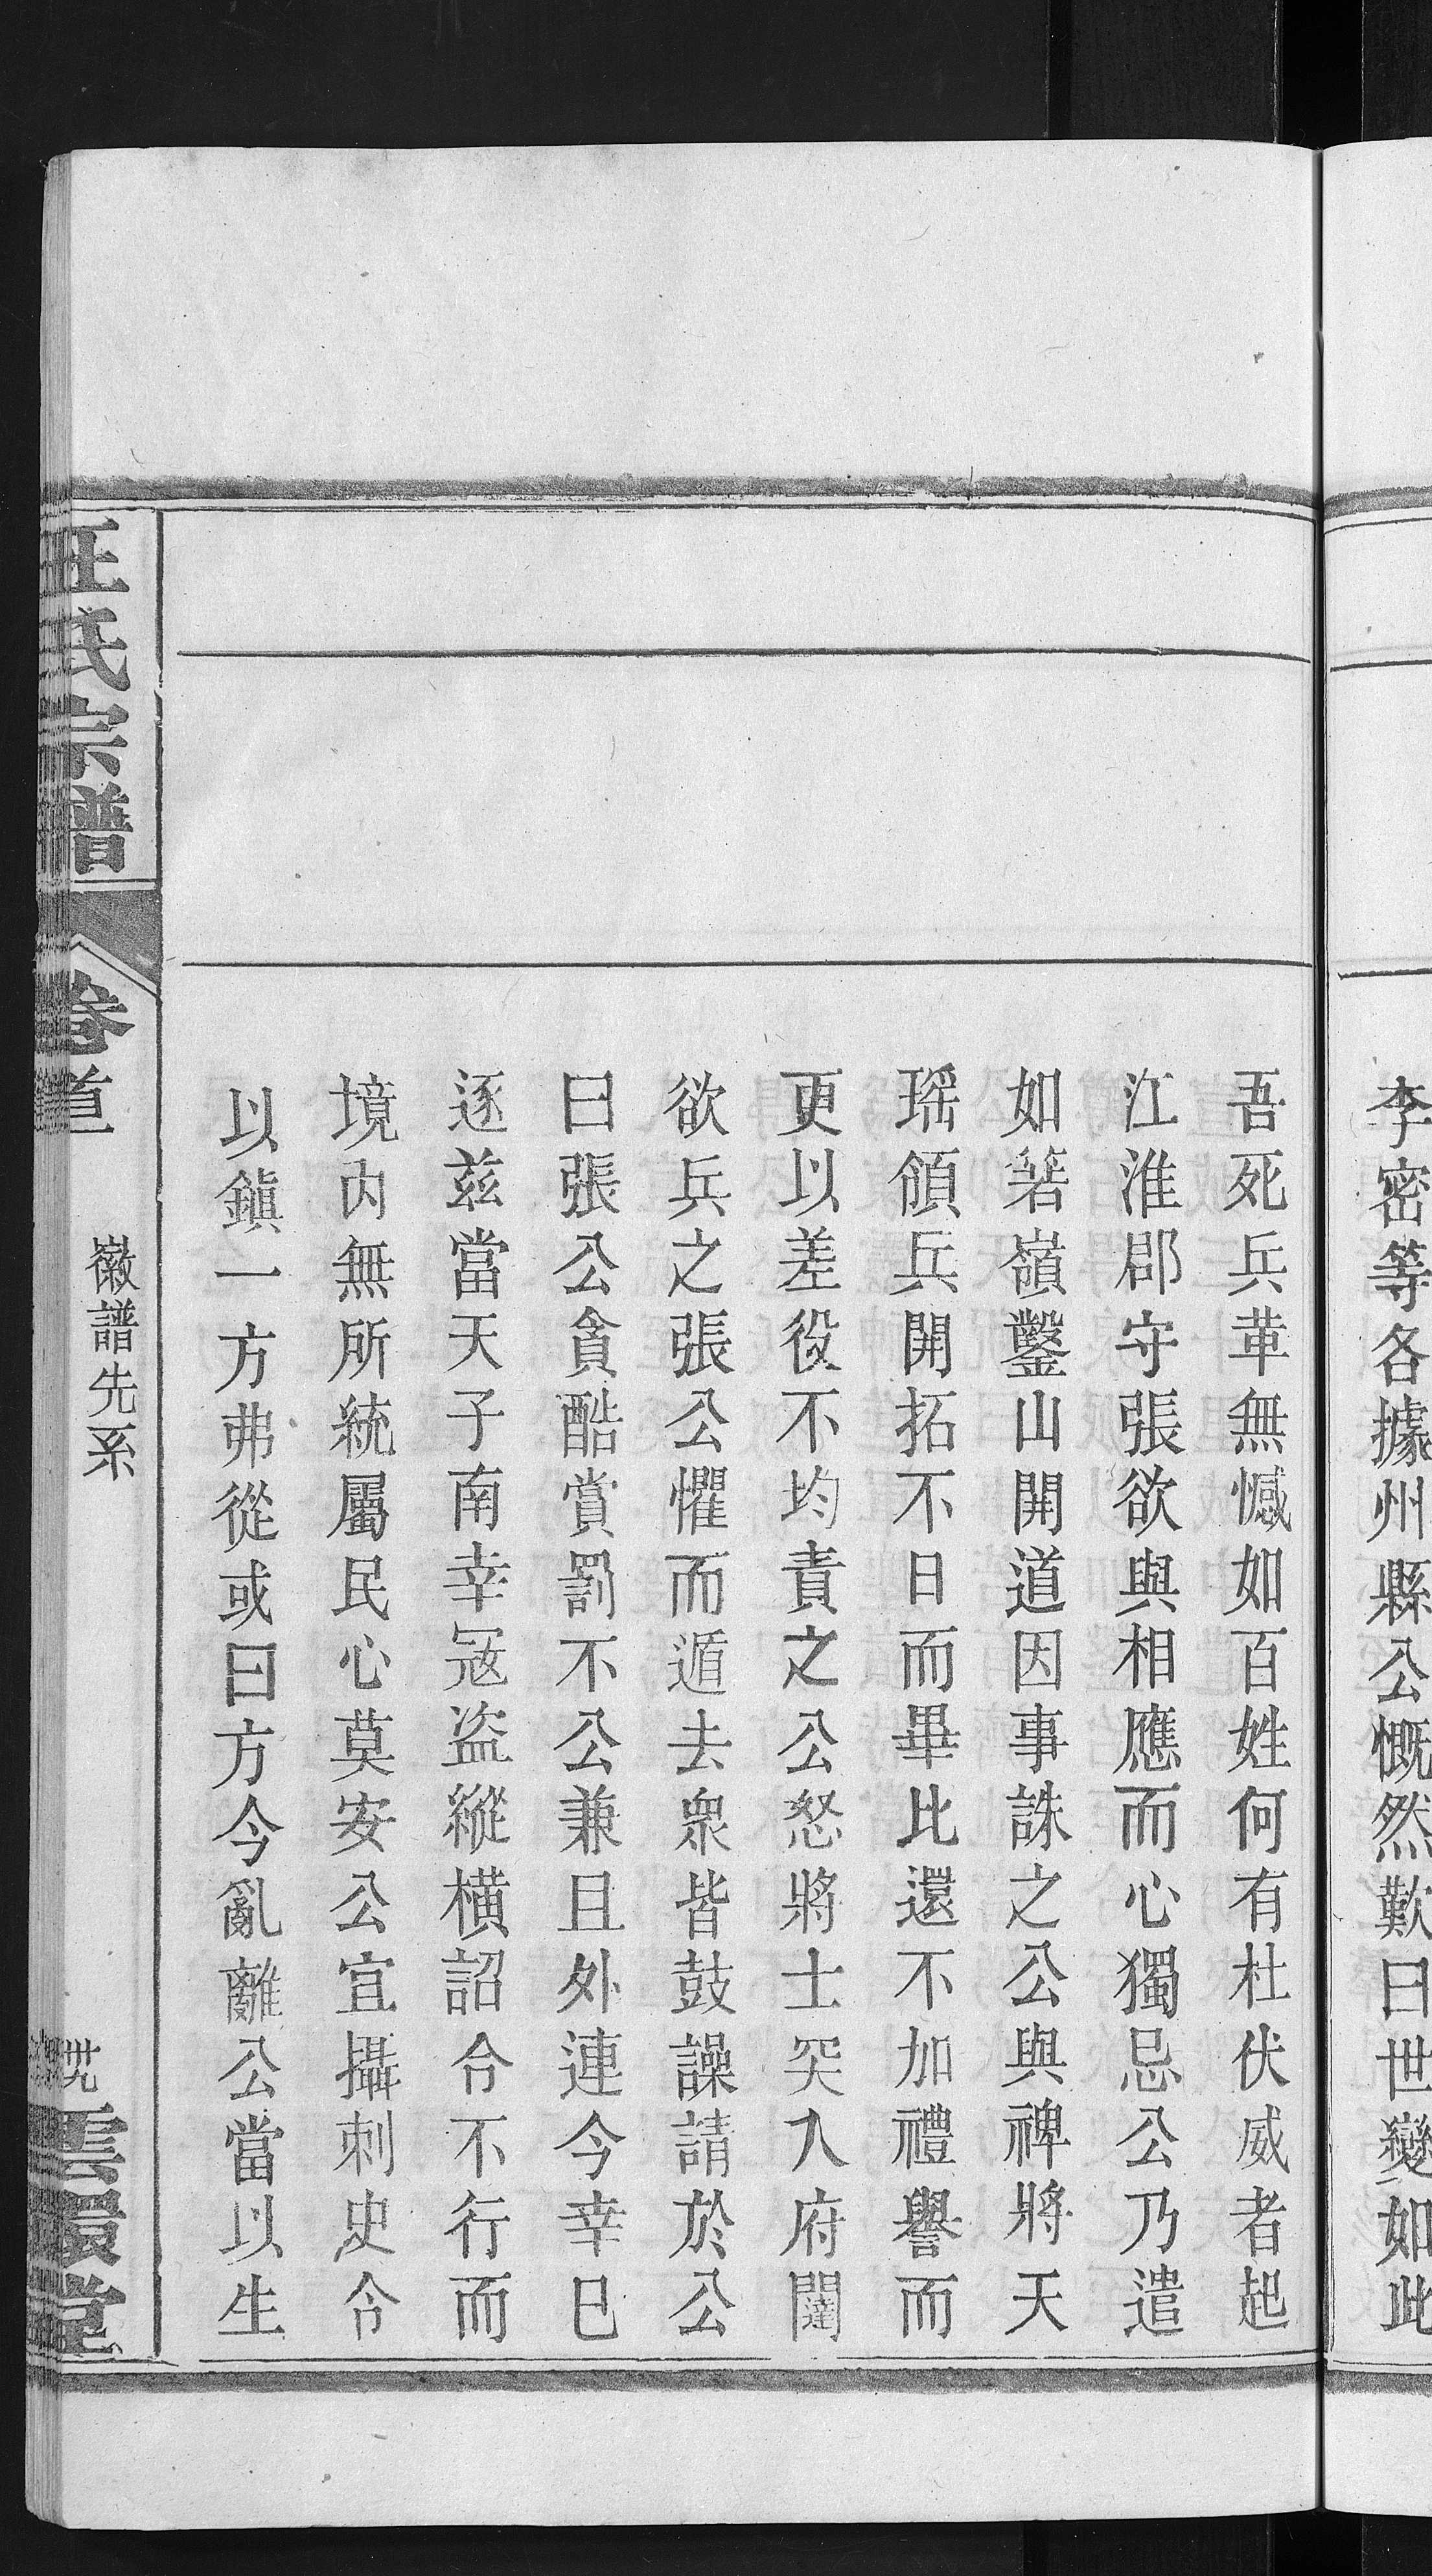 李密等各據州縣公慨然歎曰世變如此
吾死兵革無憾如百姓何有杜伏威者起
江淮郡守張欲與相應而心獨忌公乃遣
如箬嶺鑿山開道因事誅之公與裨將天
瑶領兵開拓不日而畢比還不加禮譽而
更以差役不均責之公怒將士突入府闥
欲兵之張公懼而遁去衆皆鼓譟請於公
曰張公貪酷賞罰不公兼且外連今幸巳
逐兹當天子南幸冦盗縱横詔令不行而
境内無所統屬民心莫安公宜攝刺史令
以鎭一方弗從或曰方今亂離公當以生
汪氏宗譜
卷首
徽譜先系
世九
雲環堂